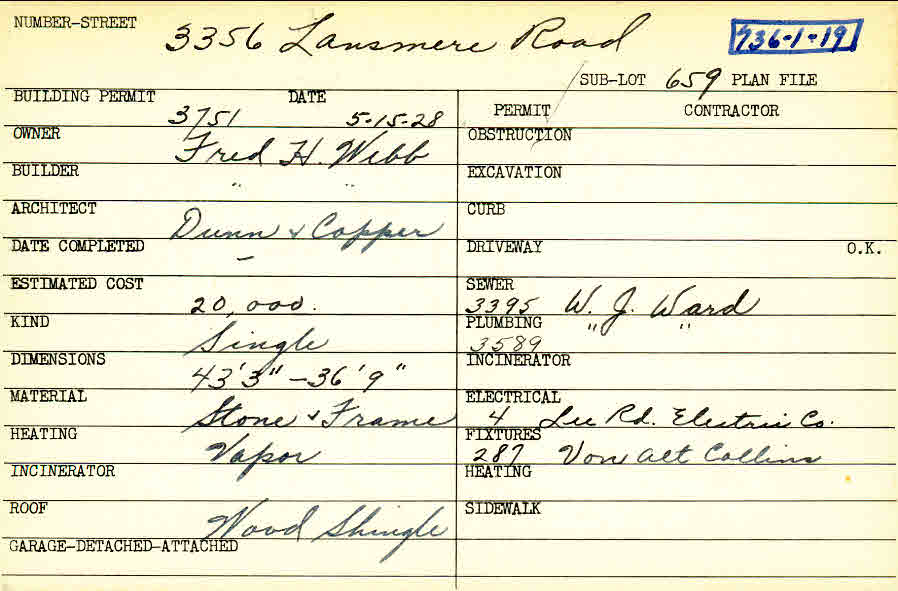 NUMBER-STREET 3356 Lansmere Road 736-1-19
SUB-LOT 659 PLAN FILE
BUILDING PERMIT DATE
3751 5-15-28
PERMIT CONTRACTOR
OWNER Fred H. Webb
OBSTRUCTION
BUILDER " "
EXCAVATION
ARCHITECT Dunn & Copper
CURB
DATE COMPLETED –
DRIVEWAY O.K.
ESTIMATED COST 20,000.
SEWER
3395 W. J. Ward
KIND Single
PLUMBING " "
3589
DIMENSIONS 43'3" – 36'9"
INCINERATOR
MATERIAL Stone & Frame
ELECTRICAL
4 Lee Rd. Electric Co.
HEATING Vapor
FIXTURES
287 Von Alt Collins
INCINERATOR
HEATING
ROOF Wood Shingle
SIDEWALK
GARAGE-DETACHED-ATTACHED